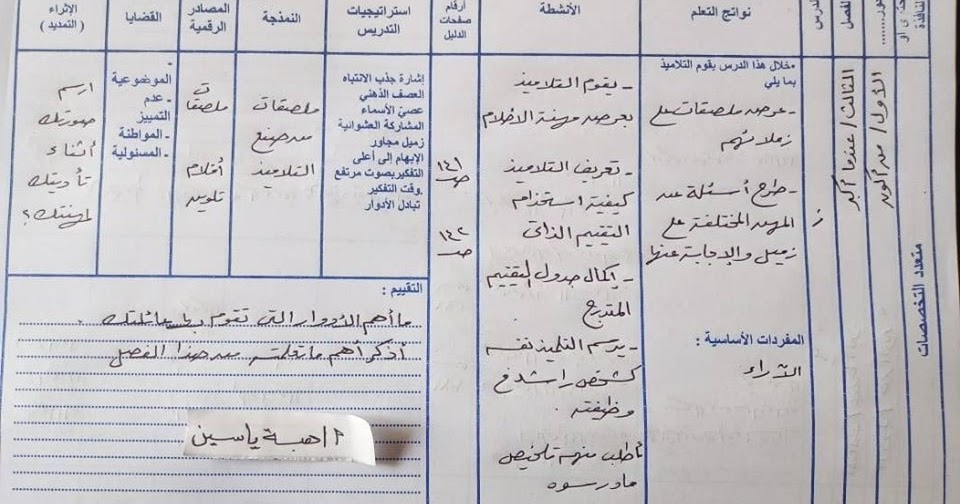 متعدد التخصصات
الأول/ من أكون
الفصل
الثالث/ عندما أكبر
الدرس
ز
نواتج التعلم
خلال هذا الدرس يقوم التلاميذ
بما يلي
- عرض ملصقات على
زملائهم
- طرح أسئلة عن
المهن المختلفة على
زميل والإجابة عنها
المفردات الأساسية :
الآراء
الأنشطة
- يقوم التلاميذ
بعرض مهنة الأحلام
- تعريف التلاميذ
كيفية استخدام
التقييم الذاتى
- إكمال جدول التقييم
المتدرج
- يرسم التلميذ نفسه
كشخص راشد فى
وظيفته
أطلب منهم تلخيص
ما درسوه
أرقام
صفحات
الدليل
١٤١
ص
١٤٢
ص
استراتيجيات
التدريس
إشارة جذب الانتباه
العصف الذهني
عصيّ الأسماء
المشاركة العشوائية
زميل مجاور
الإبهام إلى أعلى
التفكير بصوت مرتفع
وقت التفكير.
تبادل الأدوار
النمذجة
ملصقات
من صنع
التلاميذ
المصادر
الرقمية
ملصقات
أقلام
تلوين
القضايا
-
الموضوعية
- عدم
التمييز
- المواطنة
- المسئولية
الإثراء
(التمديد)
ارسم
صورتك
أثناء
تأديتك
لمهنتك؟
التقييم :
ما أهم الأدوار التى تقوم بها عائلتك .
أذكر أهم ما تعلمته من هذا الفصل
أ/هبة ياسين